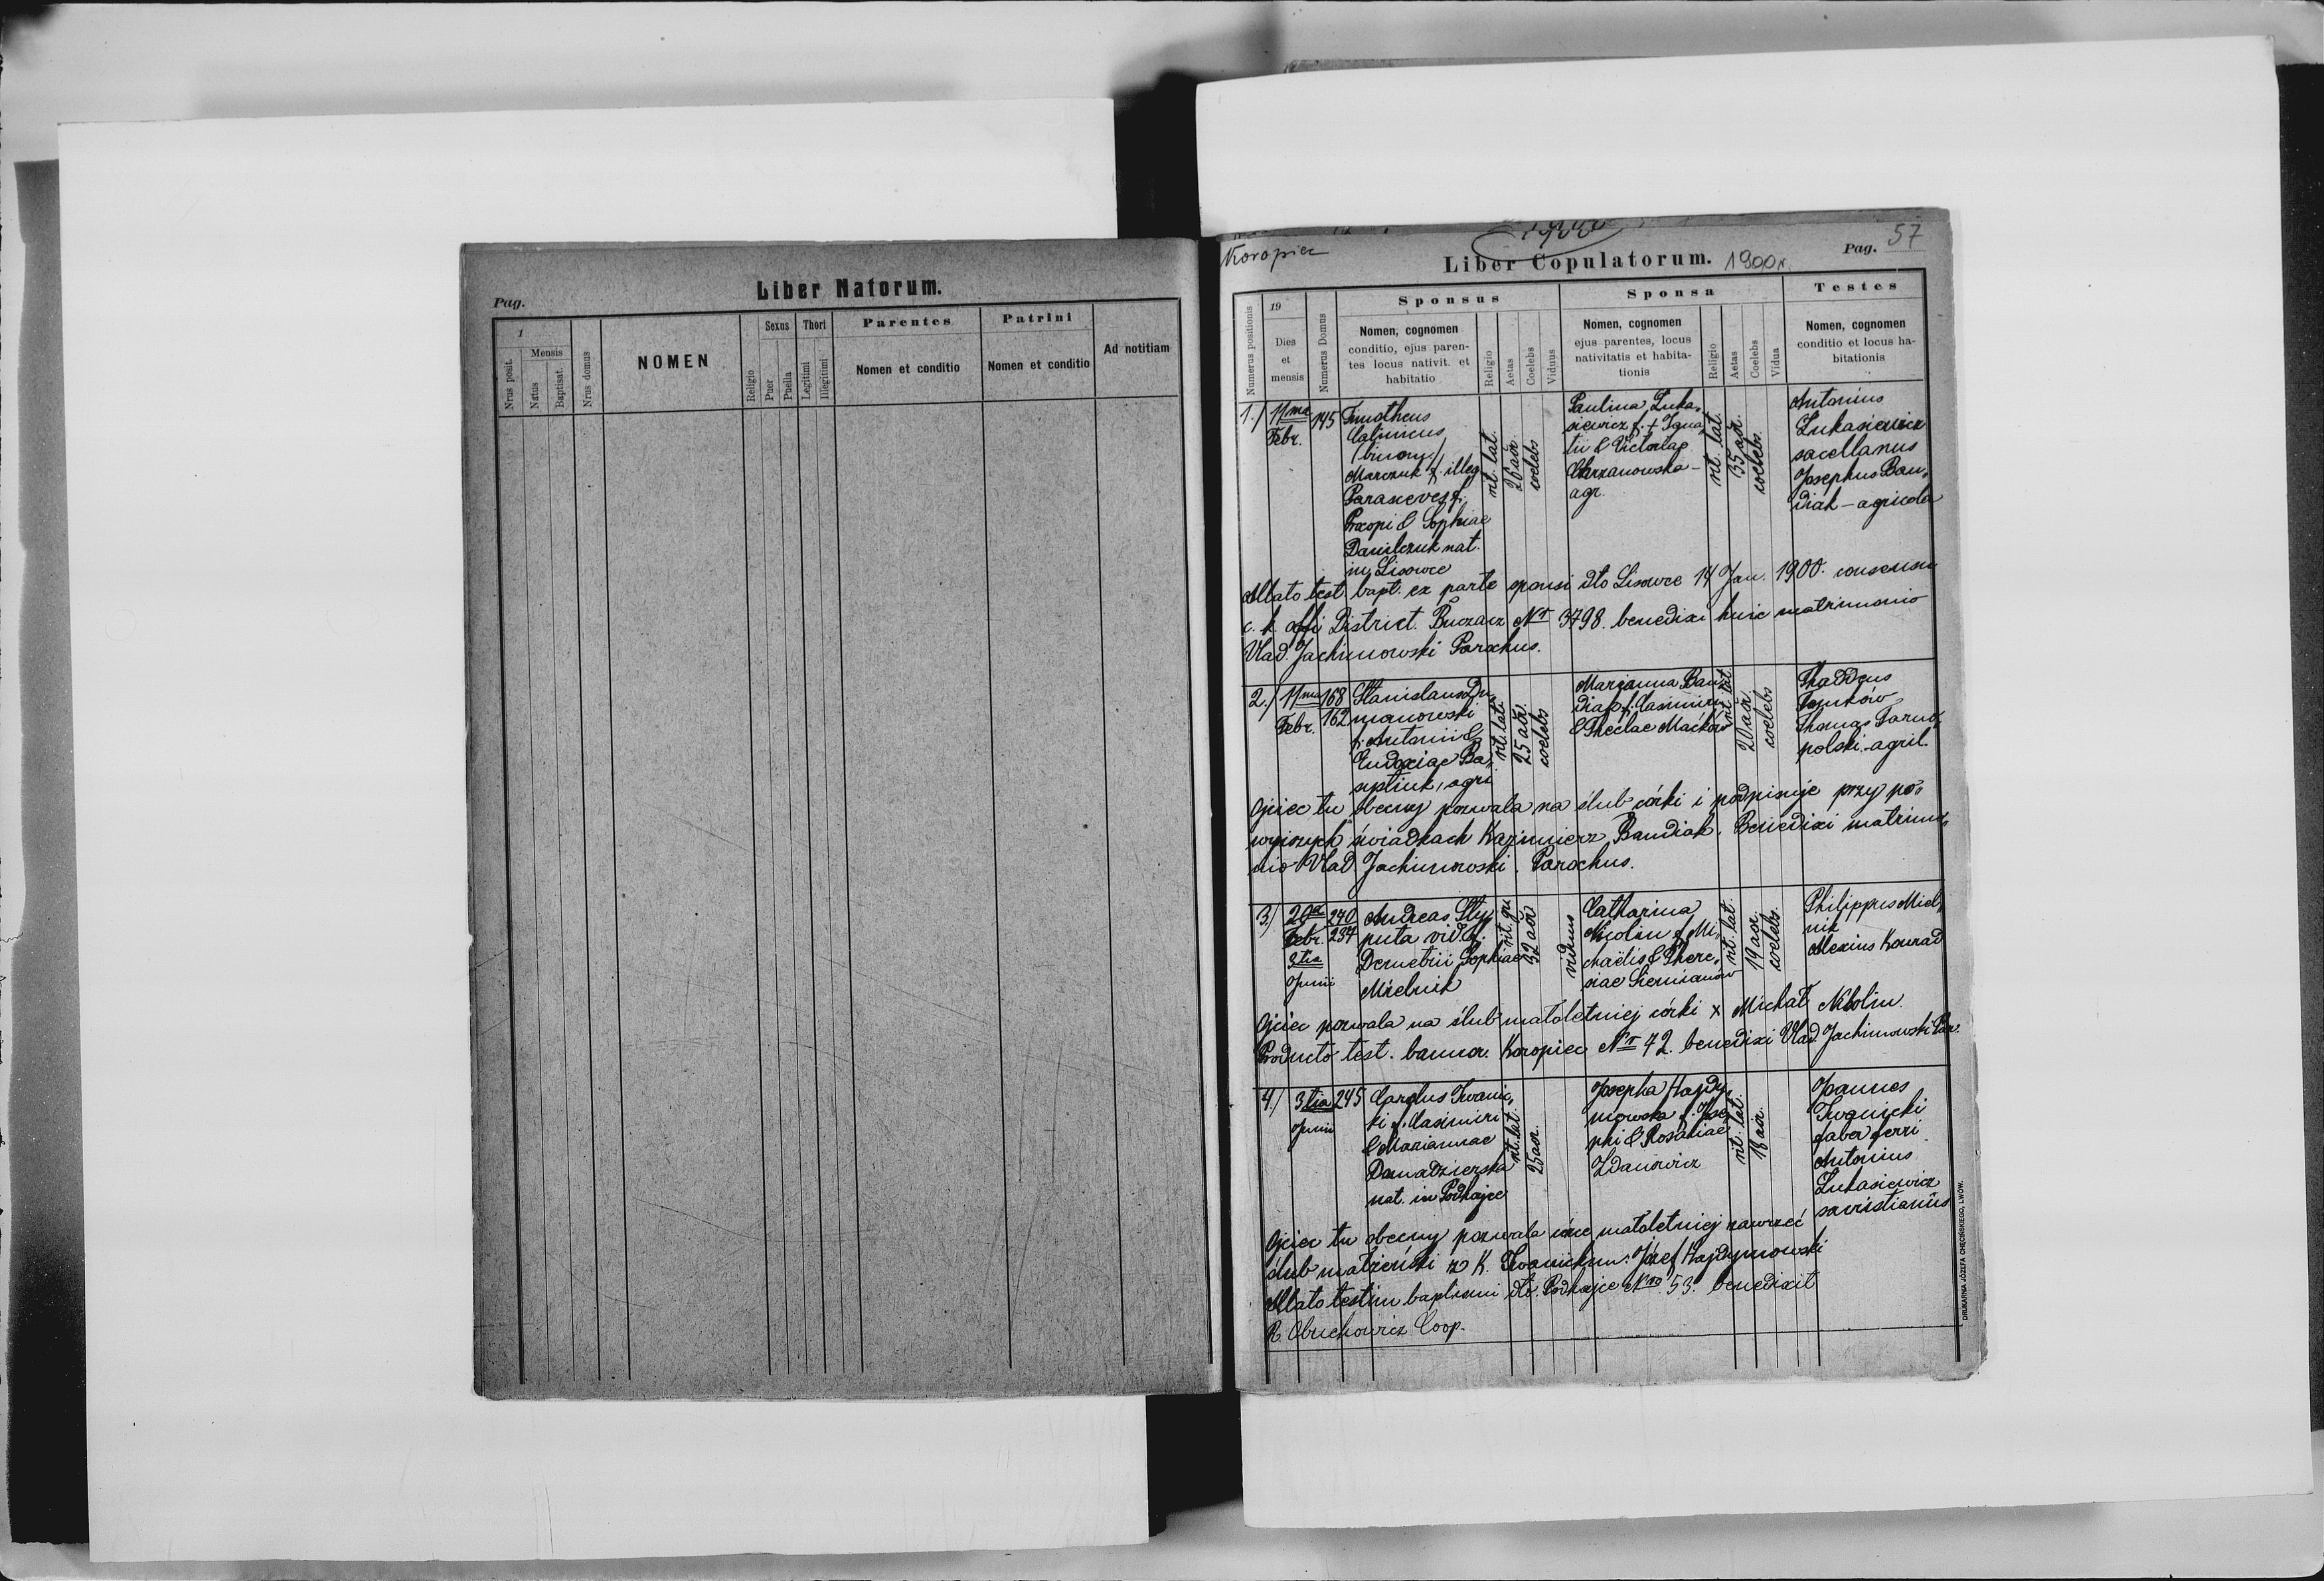 Pag.
Liber Natorum.
1
Nrus posit.
Mensis
Natus
Baptisat.
Nrus domus
NOMEN
Religio
Sexus
Puer
Puella
Thori
Legitimi
Illegitimi
Parentes
Nomen et conditio
Patrini
Nomen et conditio
Ad notitiam
Koropiec
Liber Copulatorum. 1900 r.
Pag. 57
Numerus positionis
19
Dies
et
mensis
Numerus Domus
Sponsus
Nomen, cognomen
conditio, ejus paren-
tes locus nativit. et
habitatio
Religio
Aetas
Coelebs
Viduus
Sponsa
Nomen, cognomen
ejus parentes, locus
nativitatis et habita-
tionis
Religio
Aetas
Coelebs
Vidua
Testes
Nomen, cognomen
conditio et locus ha-
bitationis
1./
11ma
Febr.
145
Timotheus
(binom.)
Marczuk f. illeg
Parasceves f.
Procopi & Sophiae
Danilczuk nat.
in Lisowce
rit. lat.
26 aor.
coelebs
Paulina Luka„
siewicz f. + Igna„
tii & Victoriae
Chrzanowska –
agr.
rit. lat.
35 aor.
coelebs.
Antonius
Łukasiewicz
sacellanus
Josephus Ban„
diak – agricola
Allato test. bapt. ex parte sponsi dto Lisowce 14 Jan. 1900. consensu
c. k. offi District. Buczacz Nr 3798. benedixi huic matrimonio
Vlad. Jachimowski Parochus.
2./
11ma
Febr.
168
162
Stanislaus Du„
manowski
f. Antonii &
Eudoxiae Ba„
agri
rit. lat.
25 aor.
coelebs
Marianna Ban„
diak f. Casimiri
& Theclae Maćków
rit. lat.
20 aor.
coelebs
Thaddeus
Tomków
Thomas Tarno„
polski – agril.
Ojciec tu obecny pozwala na ślub córki i podpisuje przy po„
wyższych świadkach Kazimierz Bandiak. Benedixi matrimo„
nio Vlad. Jachimowski. Parochus.
3./
29a
Febr.
3tia
Junii
240
237
Andreas Sły„
puta vid. f.
Demetrii Sophiae
Mielnik
rit. gr.
32 aor
viduus
Catharina
Nicolin f. Mi„
chaelis & There„
siae Siemianów
rit. lat.
19 aor.
coelebs.
Philippus Miel„
nik
Alexius Konrad
Ojciec pozwala na ślub małoletniej córki x Michał Nikolin.
Producto test. bannor. Koropiec Nr 42. benedixi Vlad. Jachimowski Par.
4./
3tia
Junii
245
Carolus Iwanic„
ki f. Casimiri
& Mariannae
nat. in Podhajce
rit. lat.
25 aor.
Josepha Hajdy„
mowska f. Jose„
phi & Rosaliae
Zdanowicz
rit. lat.
18 aor.
Joannes
Iwanicki
faber ferri
Antonius
Łukasiewicz
sacristianus
Ojciec tu obecny pozwala córce małoletniej zawrzeć
ślub małżeński z K. Iwanickim. Józef Hajdymowski
Allato testim baptismi dto. Podhajce Nro 53. benedixit
R. Obuchowicz Coop.
DRUKARNIA JÓZEFA CHĘCIŃSKIEGO, LWÓW.